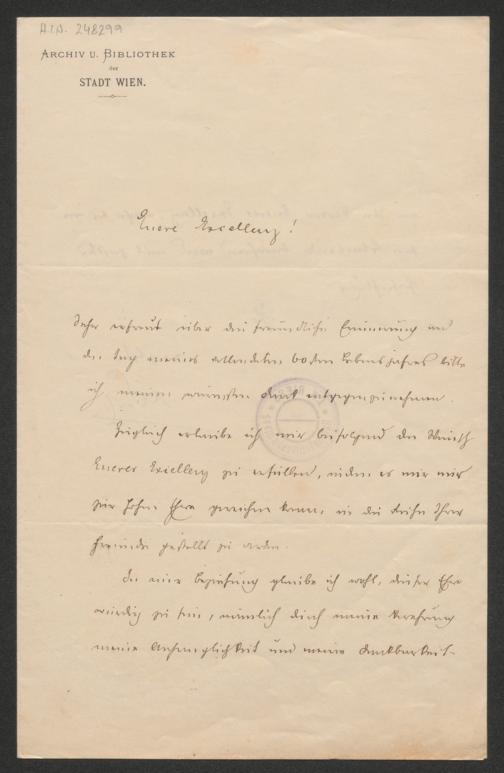 H.I.N. 248299
ARCHIV U. BIBLIOTHEK
der
STADT WIEN.
Euere Excellenz!
Sehr erfreut über die freundliche Erinnerung an
den Tag meines vollendeten 60sten Lebensjahres bitte
ich meinen wärmsten Dank entgegenzunehmen.
Zugleich erlaube ich mir beifolgend den Wunsch
Euerer Excellenz zu erfüllen, indem es mir nur
zur hohen Ehre gereichen kann, in die Reihe Ihrer
Freunde gestellt zu werden.
In einer Beziehung glaube ich wohl, dieser Ehre
würdig zu sein, nämlich durch meine Verehrung
meine Anhänglichkeit und meine Dankbarkeit.